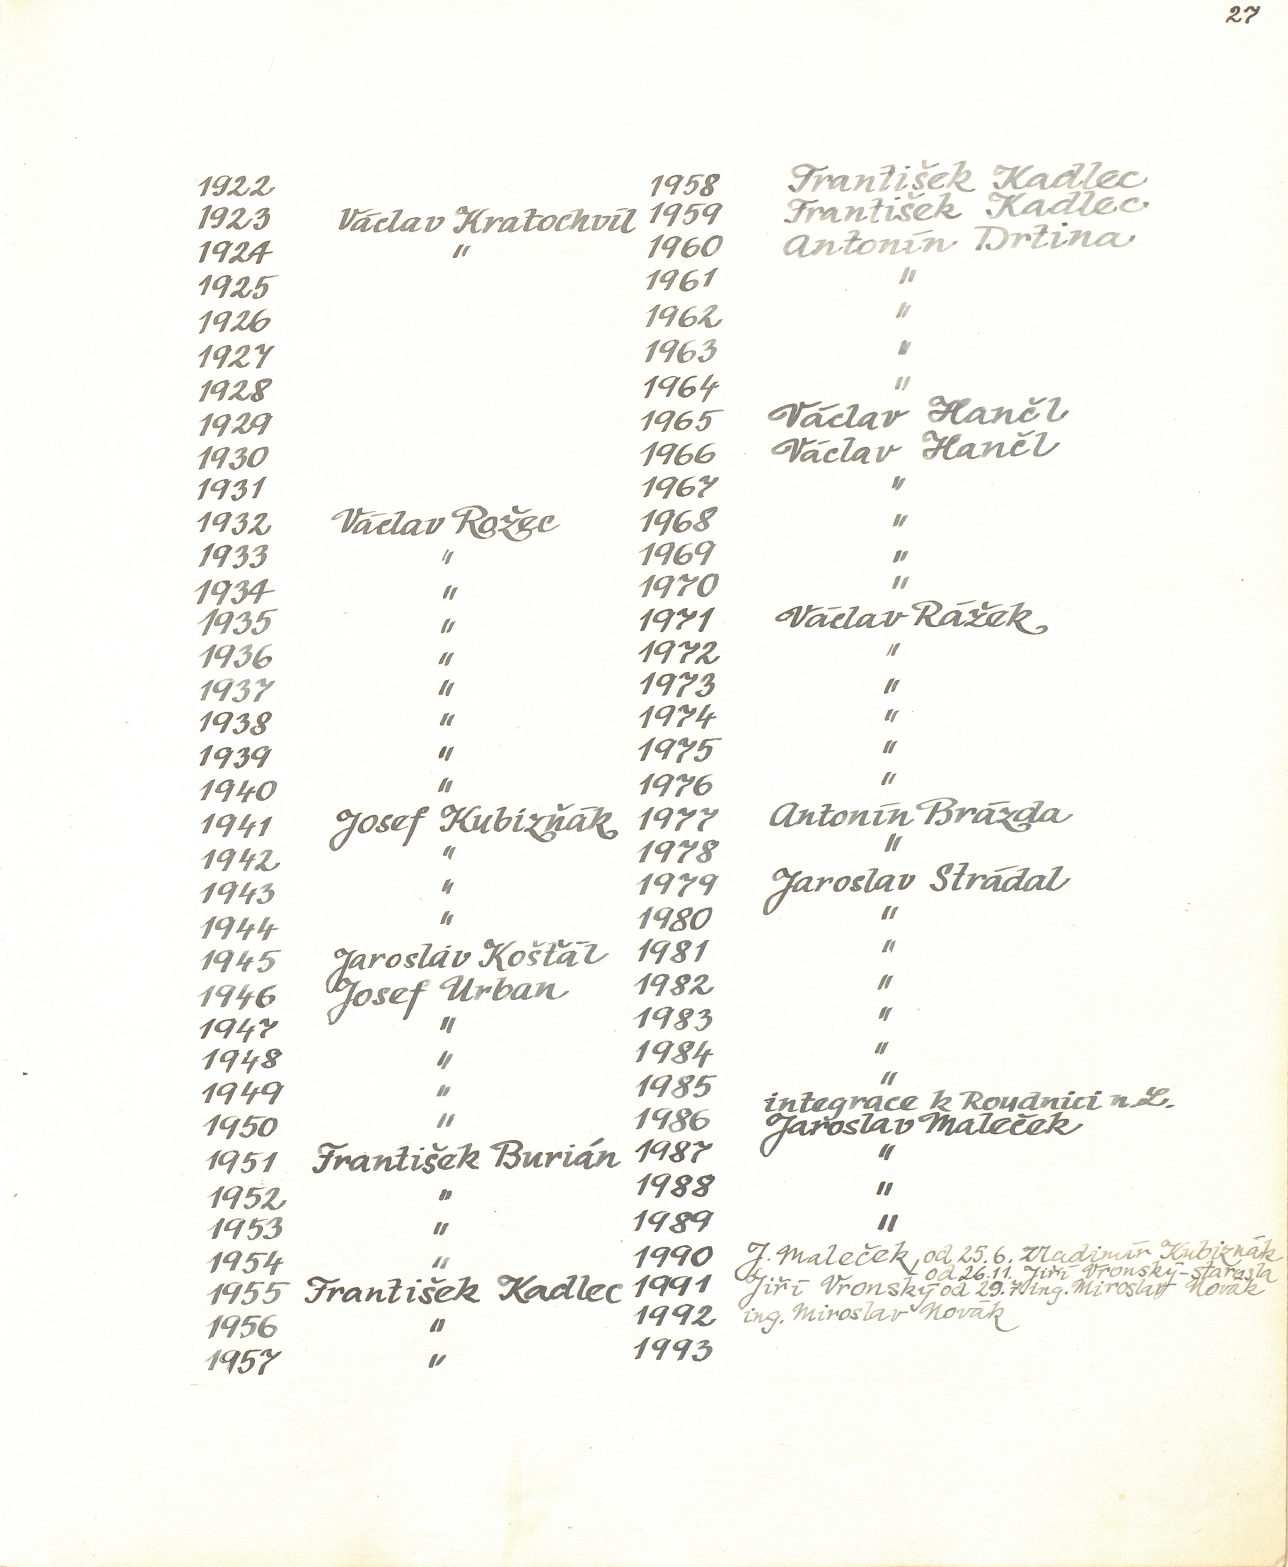 27
1922
1923 Václav Kratochvíl
1924 "
1925
1926
1927
1928
1929
1930
1931
1932 Václav Rožec
1933 "
1934 "
1935 "
1936 "
1937 "
1938 "
1939 "
1940 "
1941 Josef Kubizňák
1942 "
1943 "
1944 "
1945 Jaroslav Košťál
1946 Josef Urban
1947 "
1948 "
1949 "
1950 "
1951 František Burián
1952 "
1953 "
1954 "
1955 František Kadlec
1956 "
1957 "
1958 František Kadlec
1959 František Kadlec
1960 Antonín Drtina
1961 "
1962 "
1963 "
1964 "
1965 Václav Hančl
1966 Václav Hančl
1967 "
1968 "
1969 "
1970 "
1971 Václav Rážek
1972 "
1973 "
1974 "
1975 "
1976 "
1977 Antonín Brázda
1978 "
1979 Jaroslav Strádal
1980 "
1981 "
1982 "
1983 "
1984 "
1985 "
integrace k Roudnici n.L.
1986 Jaroslav Maleček
1987 "
1988 "
1989 "
1990 J. Maleček, od 25.6. Vladimír Kubizňák
od 26.11. Jiří Vronský-starosta
1991 Jiří Vronský od 29.7. ing. Miroslav Novák
1992 ing. Miroslav Novák
1993